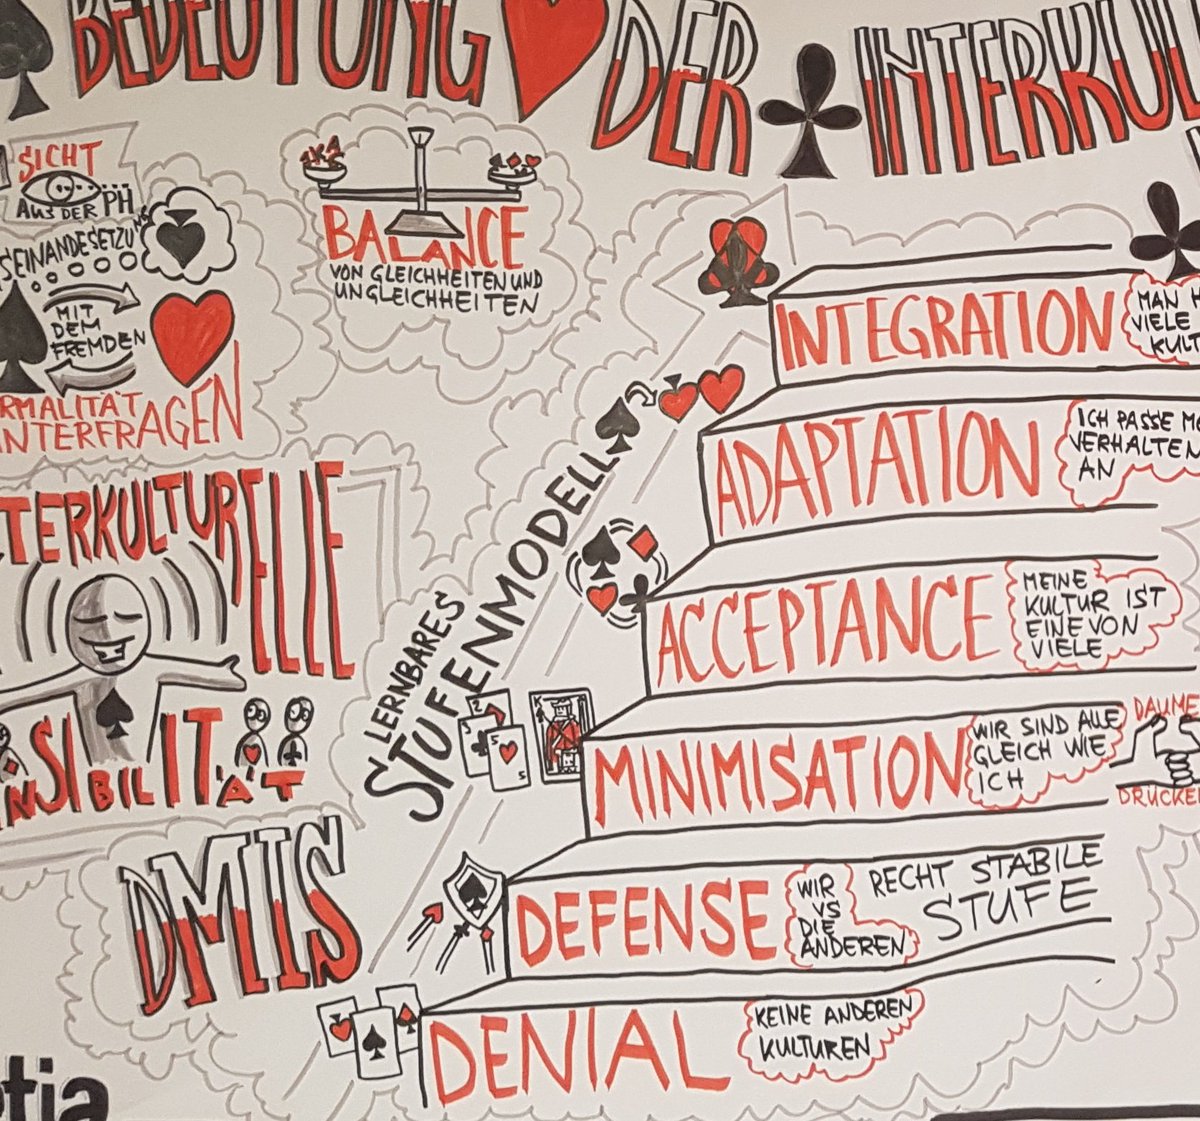 BEDEUTUNG DER INTERKUL
SICHT
AUS DER PH
SEINANDESETZU
MIT
DEM
FREMDEN
RMALITÄT
INTERFRAGEN
BALANCE
VON GLEICHHEITEN UND
UNGLEICHHEITEN
TERKULTURELLE
NSIBILITÄT
DMIS
LERNBARES
STUFENMODELL
INTEGRATION
MAN H
VIELE
KULT
ADAPTATION
ICH PASSE ME
VERHALTEN
AN
ACCEPTANCE
MEINE
KULTUR IST
EINE VON
VIELE
MINIMISATION
WIR SIND ALLE
GLEICH WIE
ICH
DAUME
DRÜCKEN
DEFENSE
WIR
VS
DIE
ANDEREN
RECHT STABILE
STUFE
DENIAL
KEINE ANDEREN
KULTUREN
tia